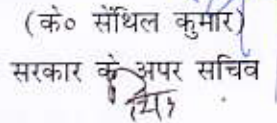 (के० सेंथिल कुमार)
सरकार के अपर सचिव